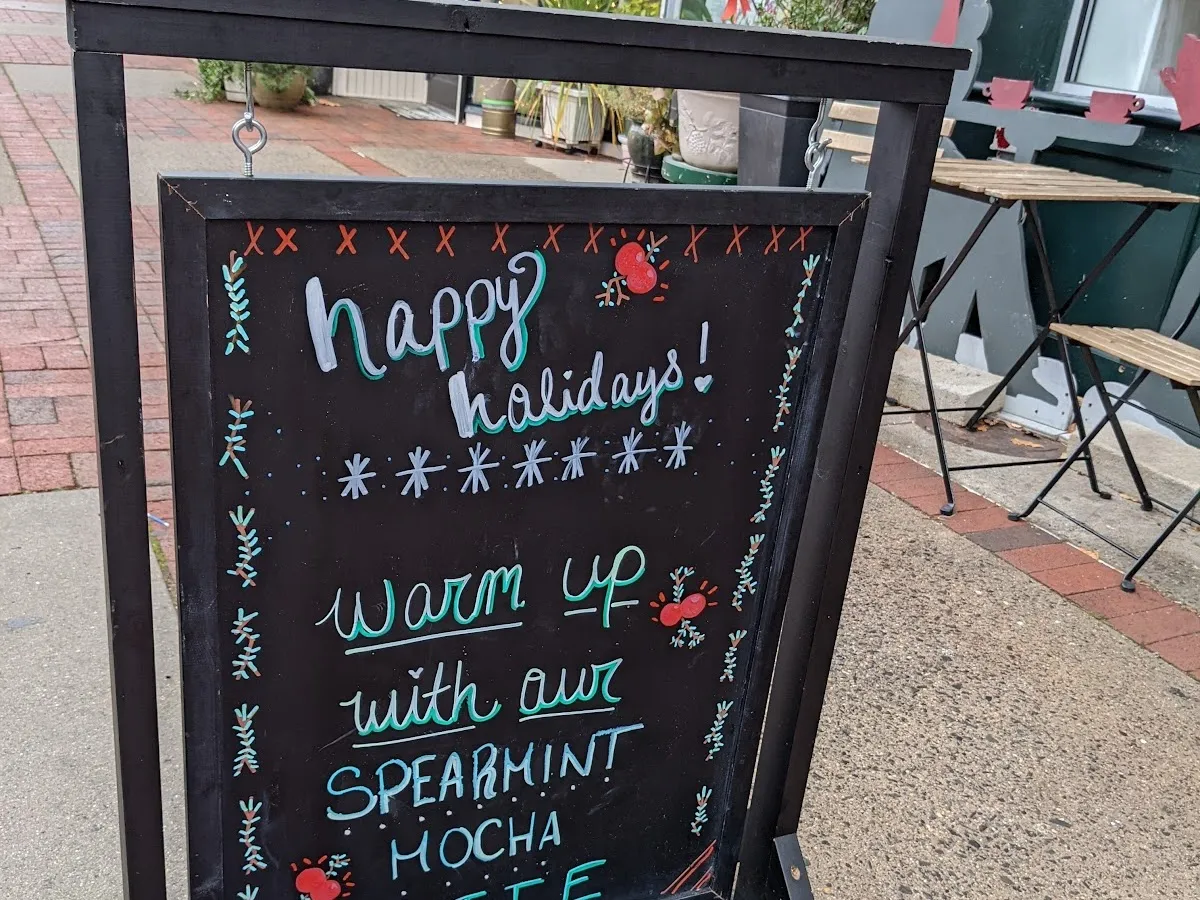 happy
holidays!
warm up
with our
SPEARMINT
MOCHA